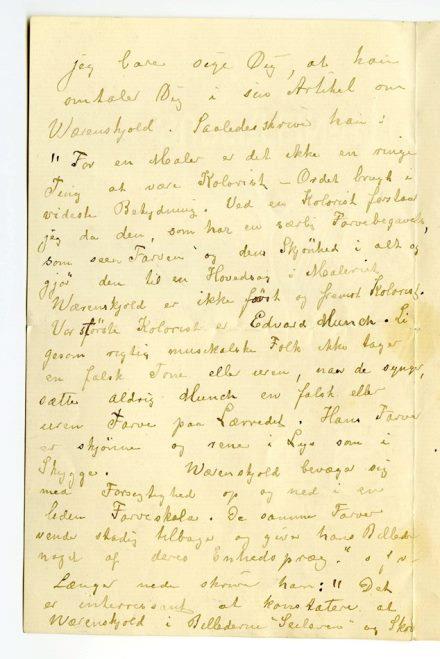 jeg bare sige Dig, at han
omtaler Dig i sin Artikel om
Wærenskjold. Saaledes skriver han:
"For en Maler er det ikke en ringe
Ting at være Kolorist – Ordet brugt i
videste Betydning. Ved en Kolorist forstaar
jeg da den, som har en særlig Farvebegavelse,
som seer Farven og dens Skjönhed i alt og
gjør den til en Hovedsag i Maleriet.
Wærenskjold er ikke først og fremst Kolorist.
Vor største Kolorist er Edvard Munch. Li
gesom rigtig musikalske Folk ikke tager
en falsk Tone eller uren, naar de synger,
sætter aldrig Munch en falsk eller
uren Farve paa Lærredet. Hans Farver
er skjönne og rene i Lys som i
Skygge. Wærenskjold bevæger sig
med Forsigtighed op og ned i en
liden Farveskala. De samme Farver
vende stadig tilbage og giver hans Billeder
noget af deres Enhedspræg." o s v.
Længer nede skriver han: "Det
er interressant at konstatere at
Wærenskjold i Billederne "Seileren" og Skov